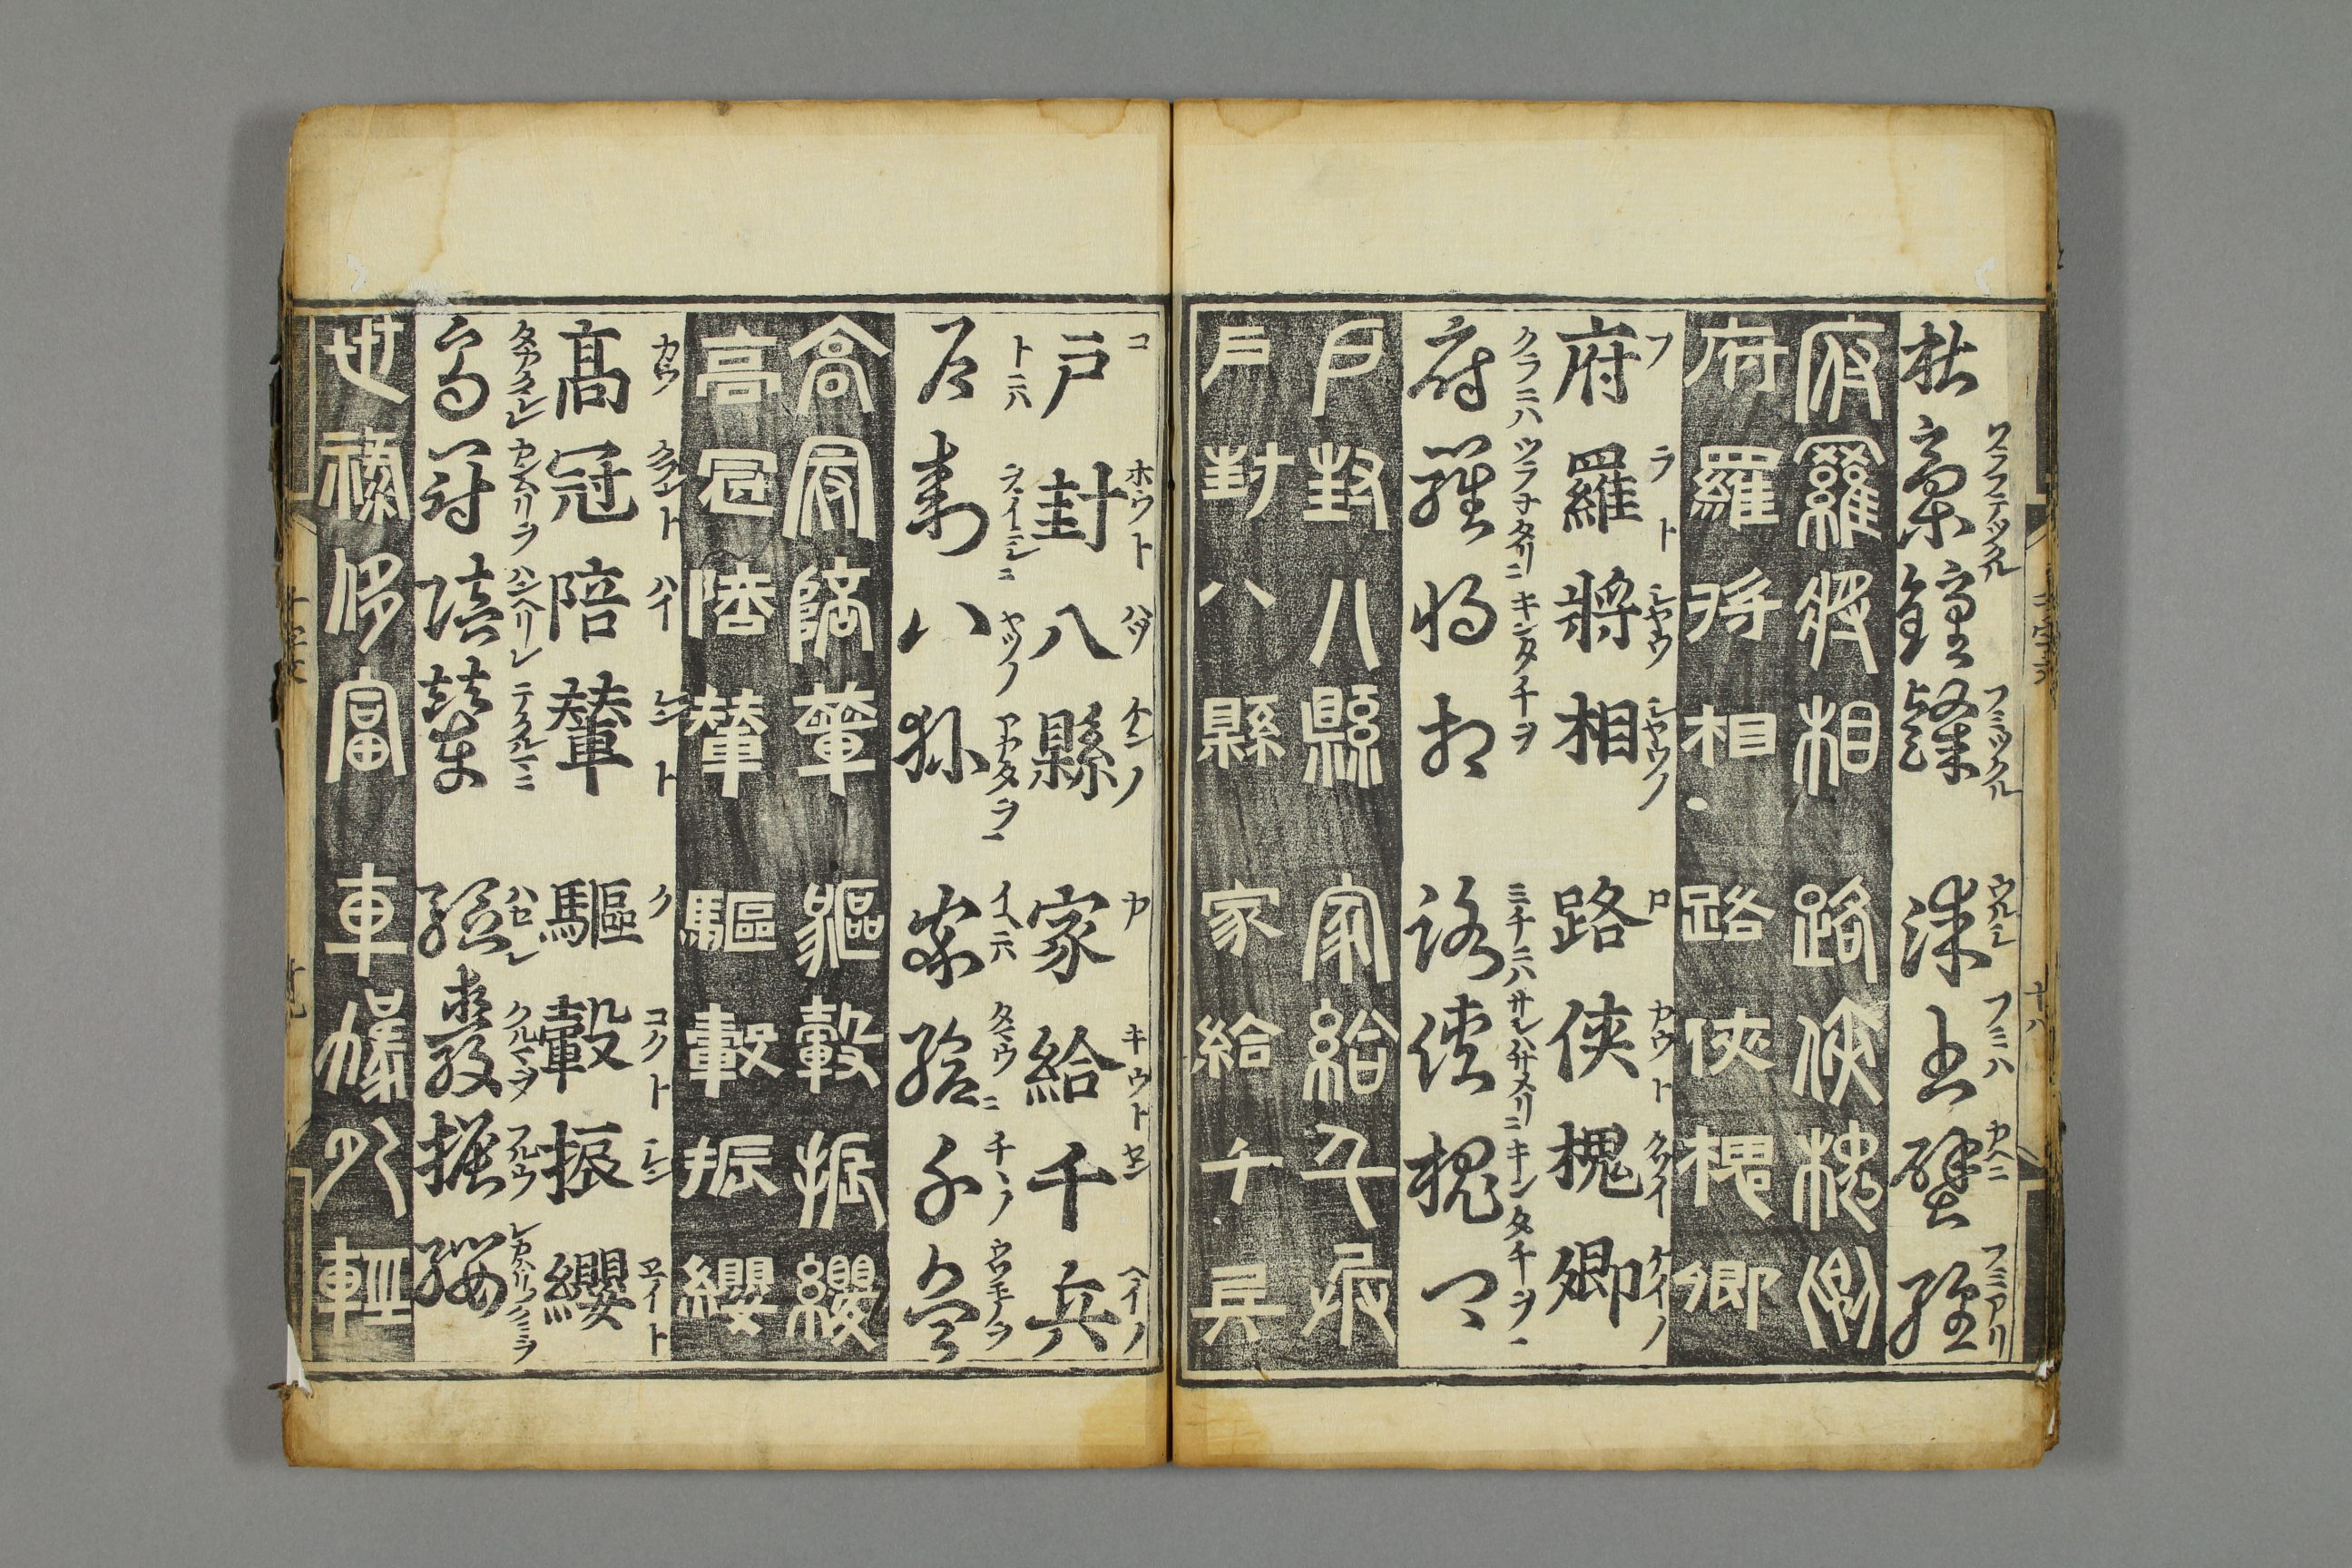 千字文 十八
フミツクル ウルシ フミハ カベニ フミアリ
杜槀鍾隸 漆書壁經
府羅將相 路俠槐卿
府羅將相 路俠槐卿
フ ラト シヤウ シヤウノ ロ カウト クワイ ケイノ
府羅將相 路俠槐卿
クラニハ キンタチヲ ミチニハ サシハサメリニ キンタチヲ一
府羅將相 路俠槐卿
戶封八縣 家給千兵
戶封八縣 家給千兵
コ ホウト ハツ ケンノ カ キウト セン ヘイノ
戶封八縣 家給千兵
トニハ ヤツノ アカタヲ一 イヘニハ タマウニ チヽノ
戶封八縣 家給千兵
高冠陪輦 驅轂振纓
高冠陪輦 驅轂振纓
カウ クワント ハイ レント ク コクト シン エイト
髙冠陪輦 驅轂振纓
タカクレ カンムリヲ ハンヘリレ テクルマニ ハセレ クルマヲ
高冠陪輦 驅轂振纓
世祿侈富 車駕肥輕
千字文 十九